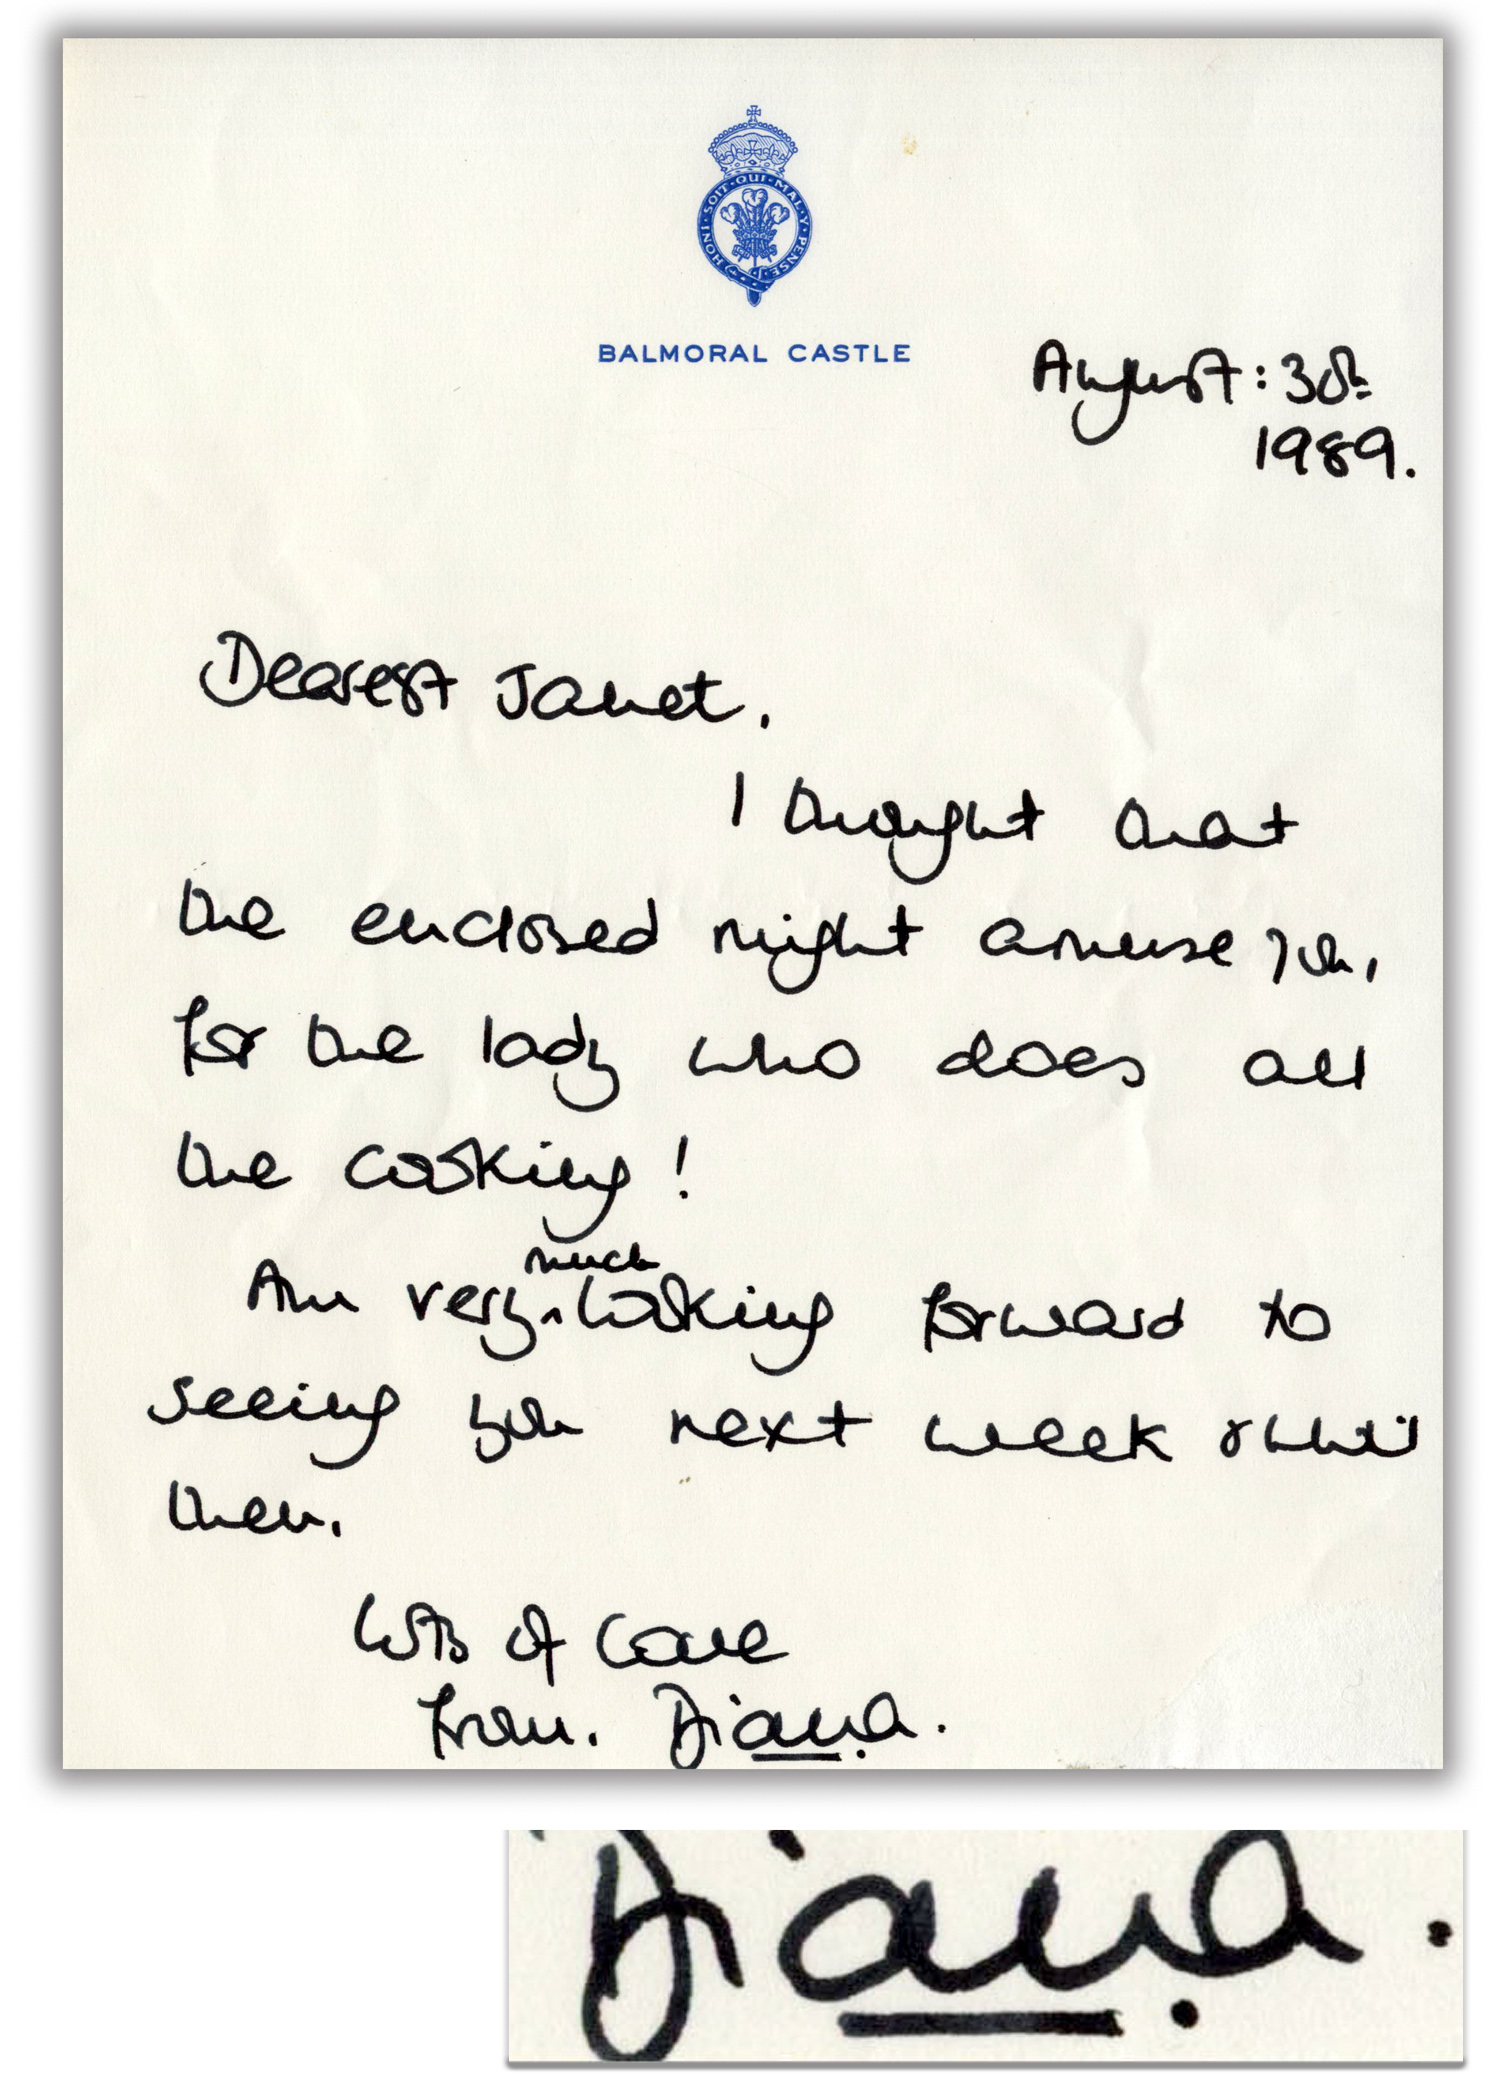 HONI · SOIT · QUI · MAL · Y · PENSE
BALMORAL CASTLE
August: 30th
1989.
Dearest Janet,
I thought that
the enclosed might amuse you,
for the lady who does all
the cooking!
much
Am very ^ looking forward to
seeing you next week & until
then.
Lots of love
from. Diana.
Diana.